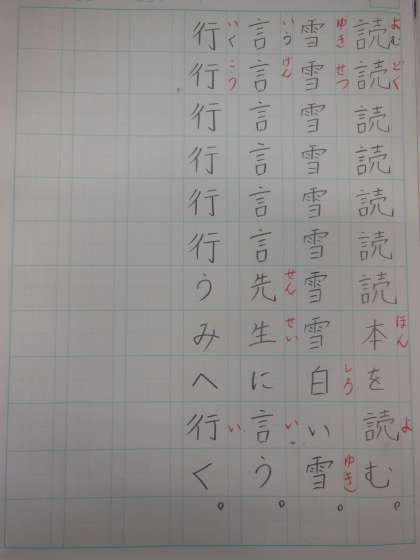 よむ どく ほん よ
読読読読読読読本を読む。
ゆき せつ しろ ゆき
雪雪雪雪雪雪雪雪白い雪。
いう げん せん せい い
言言言言言言先生に言う。
いく こう い
行行行行行行うみへ行く。